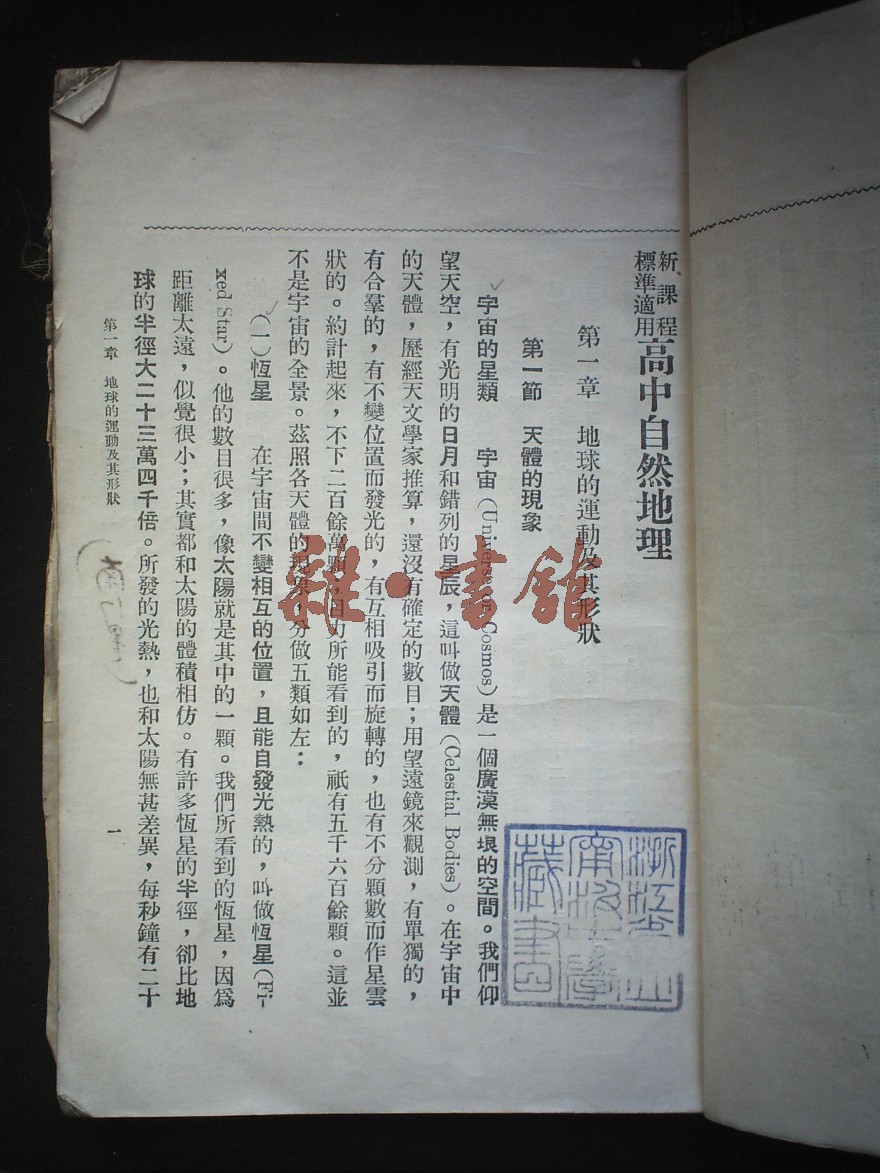 新課程
標準適用
高中自然地理
第一章 地球的運動及其形狀
第一節 天體的現象
宇宙的星類 宇宙(Universe Cosmos)是一個廣漠無垠的空間。我們仰
望天空,有光明的日月和錯列的星辰,這叫做天體(Celestial Bodies)。在宇宙中
的天體,歷經天文學家推算,還沒有確定的數目;用望遠鏡來觀測,有單獨的,
有合羣的,有不變位置而發光的,有互相吸引而旋轉的,也有不分顆數而作星雲
狀的。約計起來,不下二百餘萬顆,目力所能看到的,祇有五千六百餘顆。這並
不是宇宙的全景。茲照各天體的現象,分做五類如左:
(一)恆星 在宇宙間不變相互的位置,且能自發光熱的,叫做恆星(Fi-
xed Star)。他的數目很多,像太陽就是其中的一顆。我們所看到的恆星,因爲
距離太遠,似覺很小;其實都和太陽的體積相仿。有許多恆星的半徑,卻比地
球的半徑大二十三萬四千倍。所發的光熱,也和太陽無甚差異,每秒鐘有二十
第一章 地球的運動及其形狀
一
雜·書館
浙江省立
中學
藏書